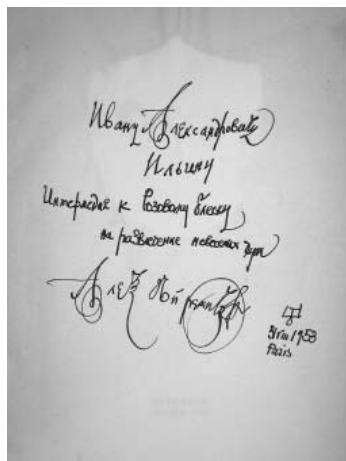 Ивану Александровичу
Ильину
Интермедия к Розовому блеску
на развлечение
Алексей Ремизов
31 VIII 1953
Paris